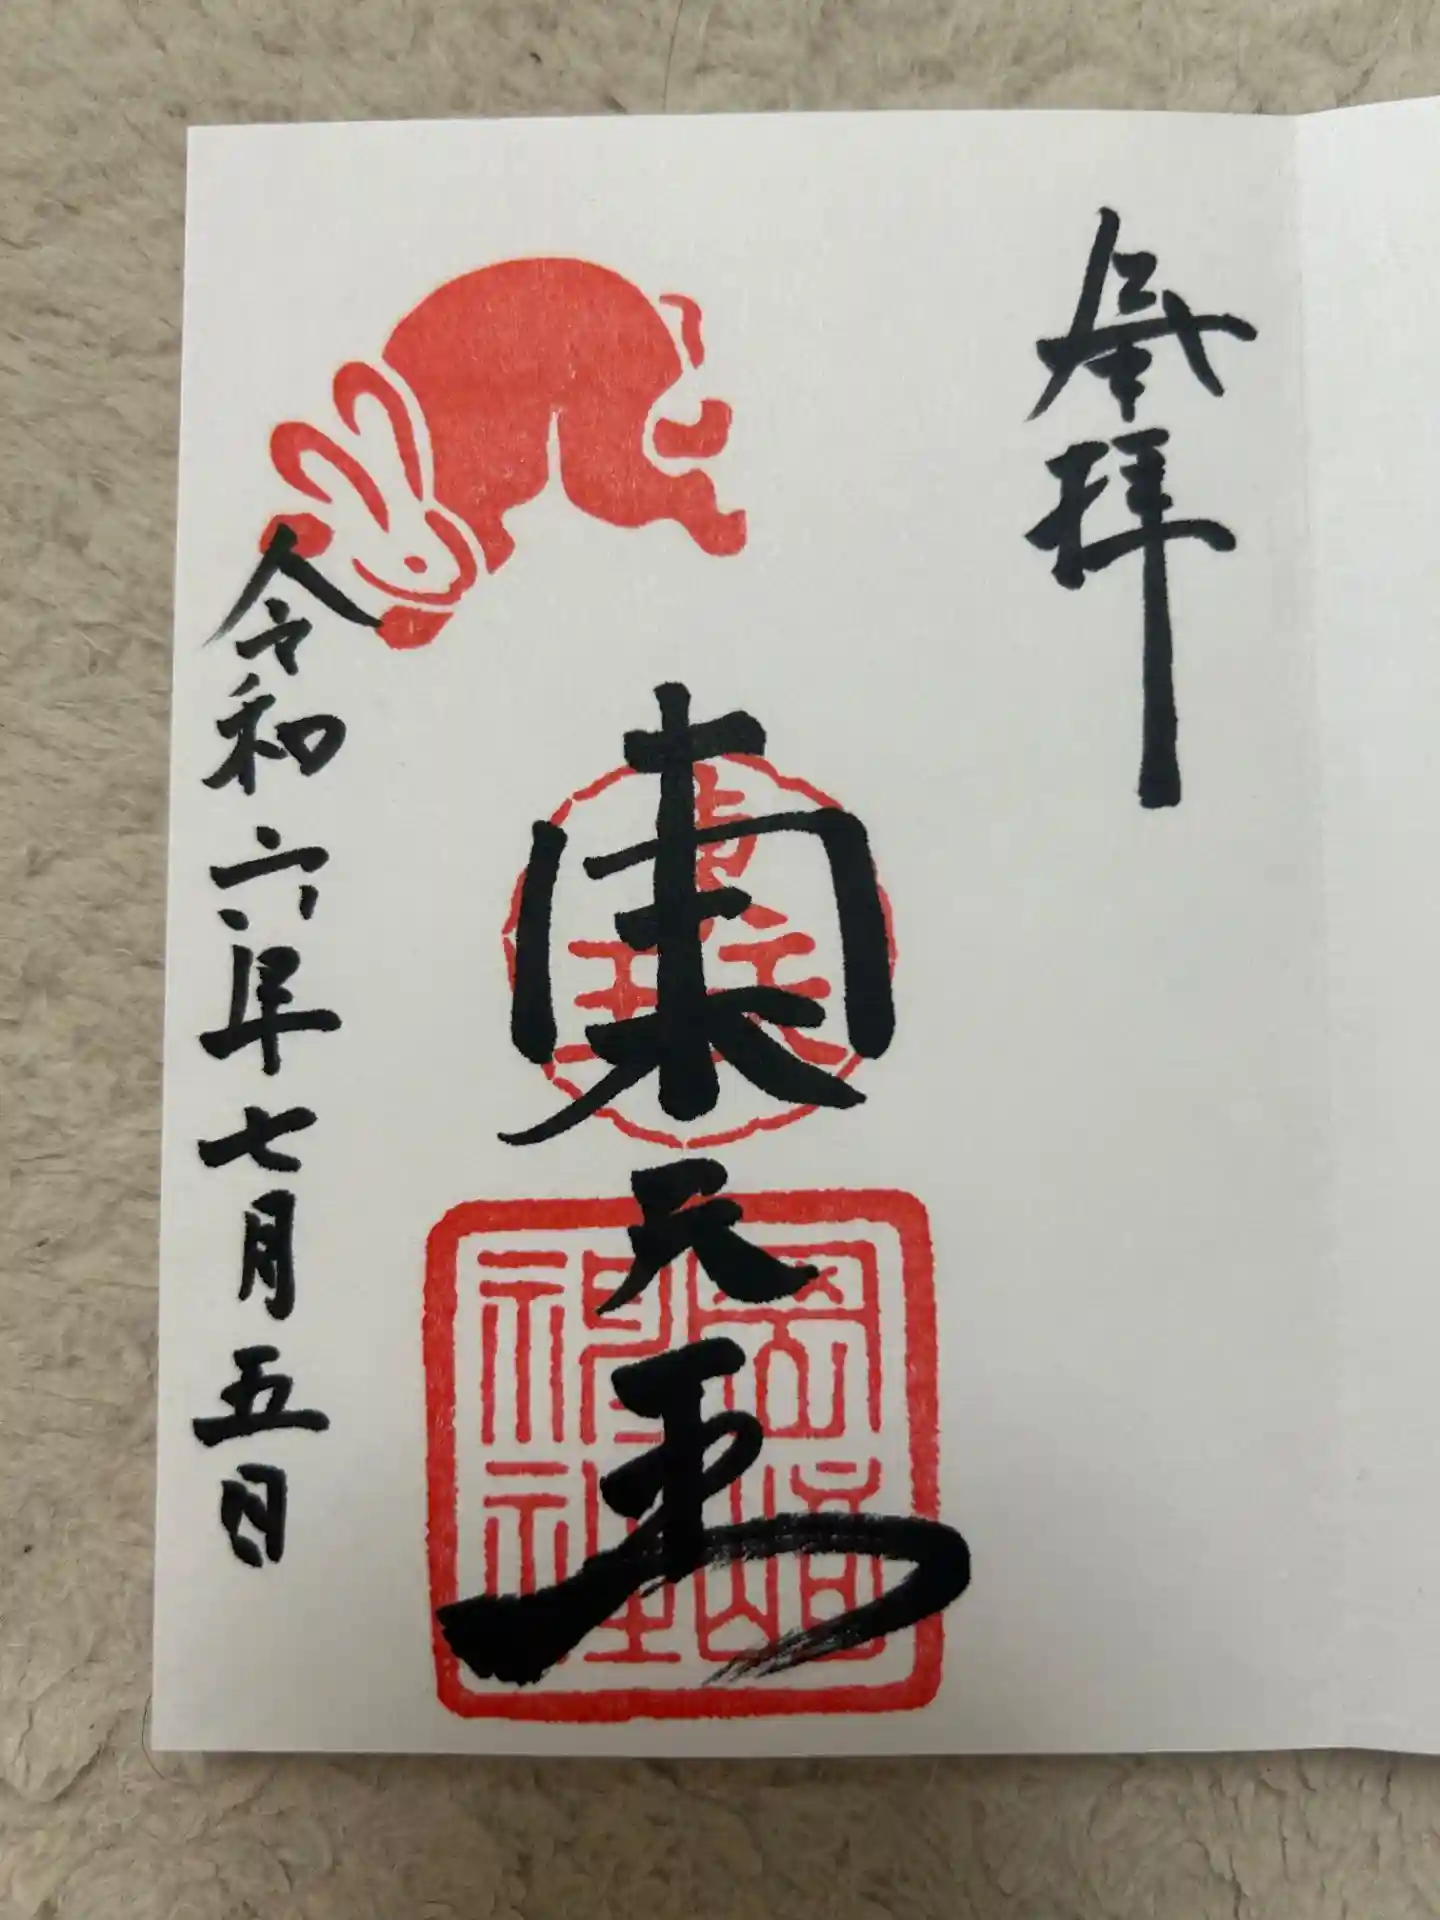 奉拝
東天王
岡崎
神社
令和六年七月五日